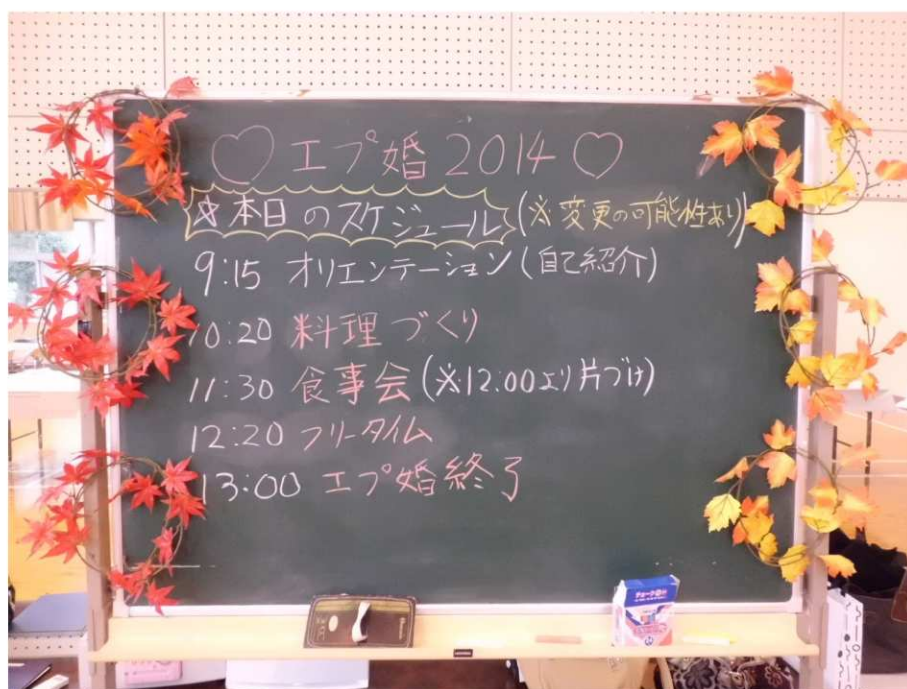 ♡ エプ婚 2014 ♡
☆本日のスケジュール (※変更の可能性あり)
9:15 オリエンテーション (自己紹介)
10:20 料理づくり
11:30 食事会 (※12:00より片づけ)
12:20 フリータイム
13:00 エプ婚終了
チョーク